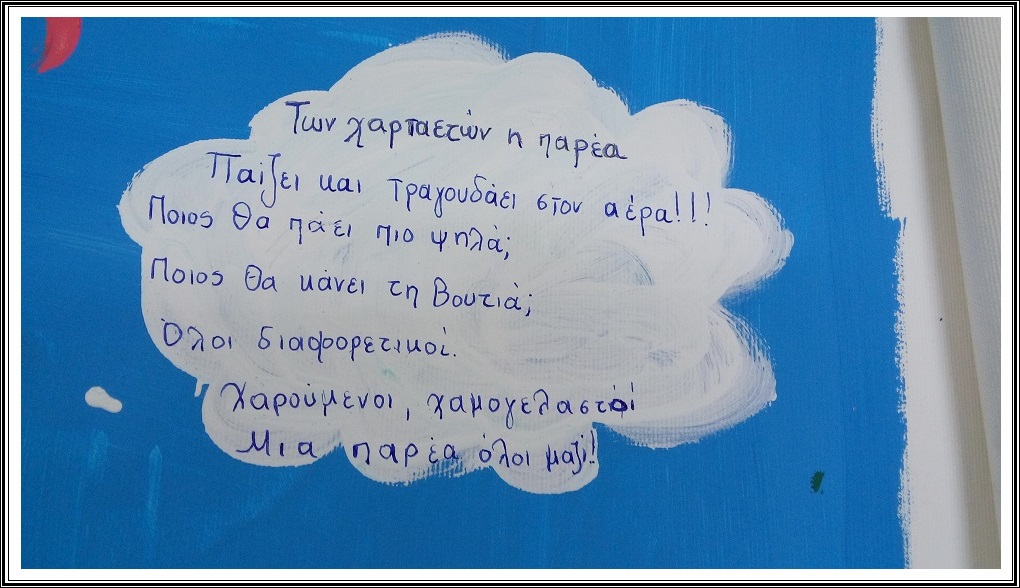 Των χαρταετών η παρέα
Παίζει και τραγουδάει στον αέρα!!!
Ποιος θα πάει πιο ψηλά;
Ποιος θα κάνει τη βουτιά;
Όλοι διαφορετικοί.
Χαρούμενοι, χαμογελαστοί
Μια παρέα όλοι μαζί!